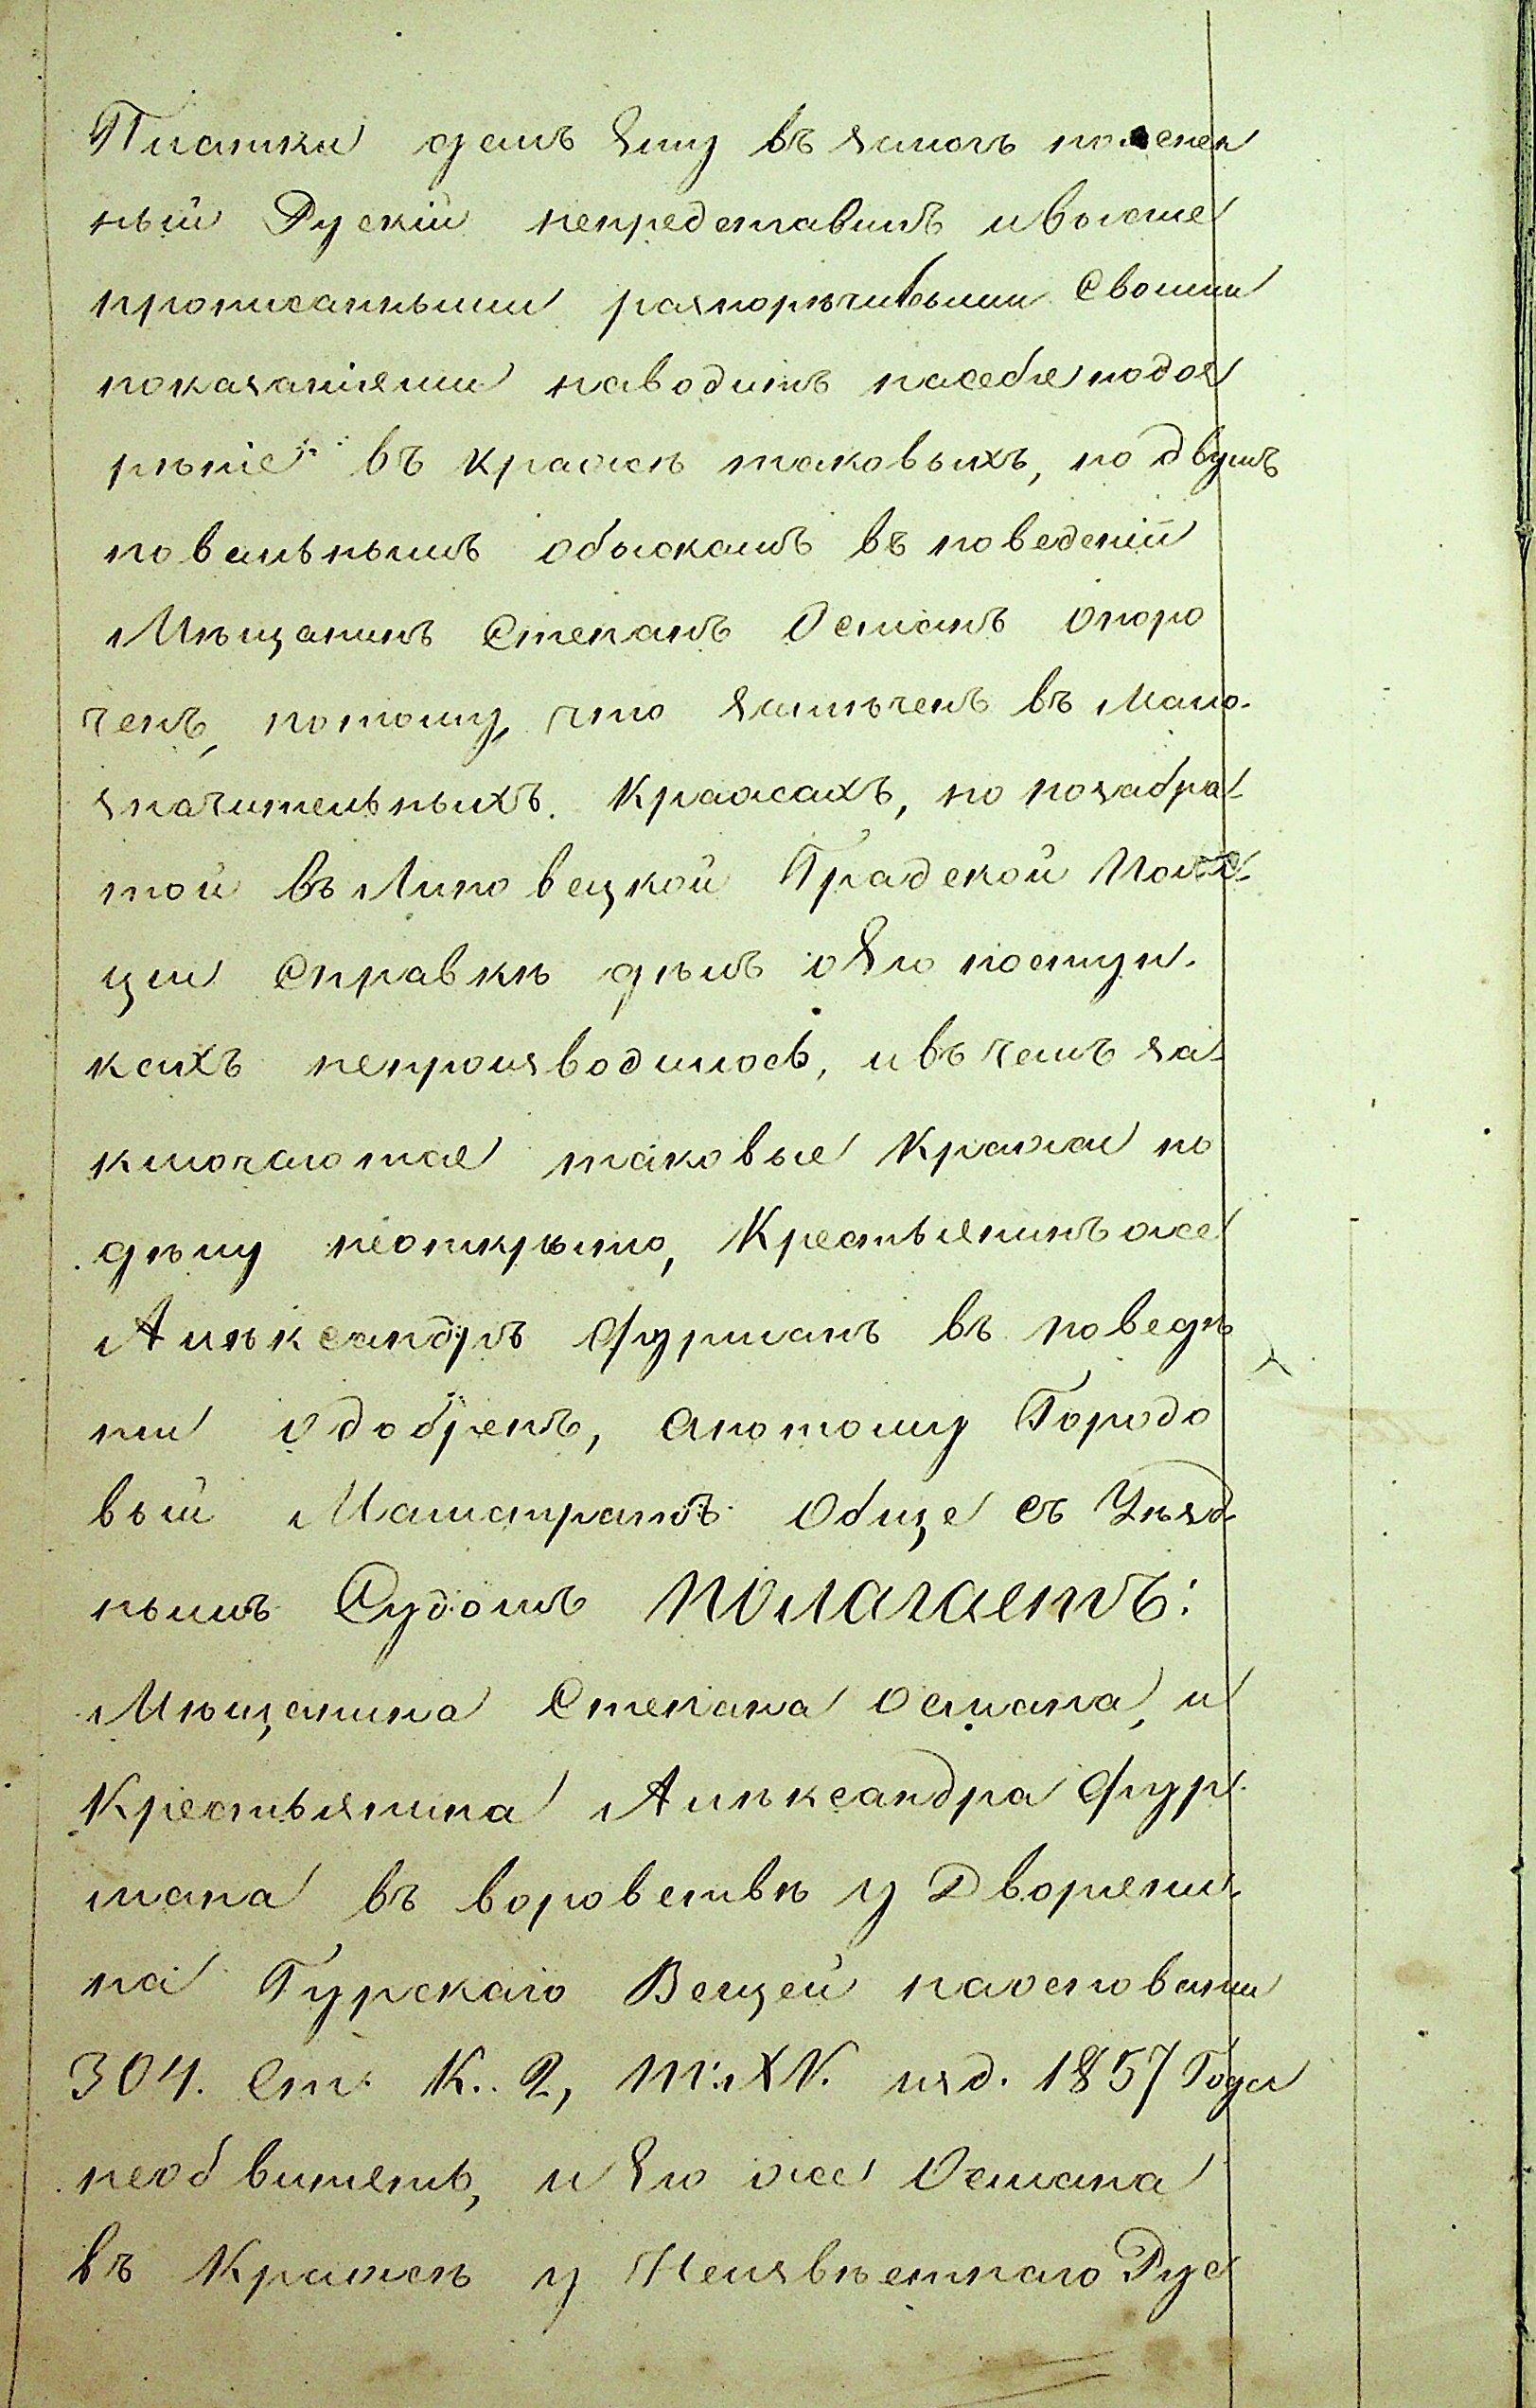 Платки далъ Ему въ залогъ помянен
ный Рускій непредставилъ ивыше
прописанными разноречивыми Своими
показаніями наводитъ насебя подоз
рѣніе въ кражѣ таковыхъ, по двумъ
повальнымъ обыскамъ въ поведеніи
Мѣщанинъ Степанъ Османъ Опоро
ченъ, потому, что Замѣченъ въ Мало-
значительныхъ Кражахъ, но позабра-
той въ Липовецкой Градской Поли-
ции Справкѣ дѣлъ оЕго поступ-
кахъ непроизводилось, ивъ чемъ за-
ключаются таковые Кражи по
дѣлу неоткрыто, Крестьянинъ же
Алѣксандръ Фурманъ въ поведѣ
нии Одобренъ, Апотому Городо
вый Магистратъ Обще съ Уѣзд-
нымъ Судомъ Полагаетъ:
Мѣщанина Степана Османа, и
Крестьянина Алѣксандра Фур-
мана въ воровствѣ у Дворяни-
на Гурскаго Вещей наосновании
304. Ст. К. 2, Т: XV. изд. 1857 Года
необвинять, и Его же Османа
въ Кражѣ у Неизвѣстнаго Рус